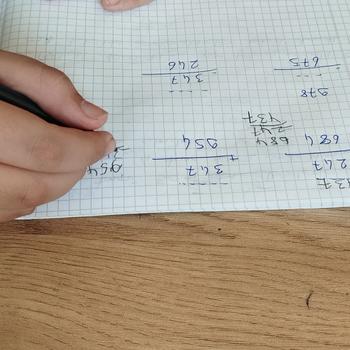 37
247
684
684
247
437
- - - -
+
347
954
954
978
- - -
675
- - - -
347
246